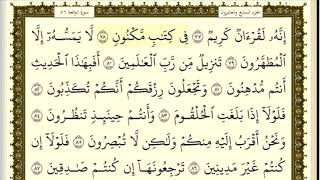 الجزء السابع والعشرون سورة الواقعة ٥٦
إِنَّهُۥ لَقُرْءَانٌ كَرِيمٌ ٧٧ فِى كِتَٰبٍ مَّكْنُونٍ ٧٨ لَّا يَمَسُّهُۥٓ إِلَّا
ٱلْمُطَهَّرُونَ ٧٩ تَنزِيلٌ مِّن رَّبِّ ٱلْعَٰلَمِينَ ٨٠ أَفَبِهَٰذَا ٱلْحَدِيثِ
أَنتُم مُّدْهِنُونَ ٨١ وَتَجْعَلُونَ رِزْقَكُمْ أَنَّكُمْ تُكَذِّبُونَ ٨٢
فَلَوْلَآ إِذَا بَلَغَتِ ٱلْحُلْقُومَ ٨٣ وَأَنتُمْ حِينَئِذٍ تَنظُرُونَ ٨٤
وَنَحْنُ أَقْرَبُ إِلَيْهِ مِنكُمْ وَلَٰكِن لَّا تُبْصِرُونَ ٨٥ فَلَوْلَآ إِن
كُنتُمْ غَيْرَ مَدِينِينَ ٨٦ تَرْجِعُونَهَآ إِن كُنتُمْ صَٰدِقِينَ ٨٧